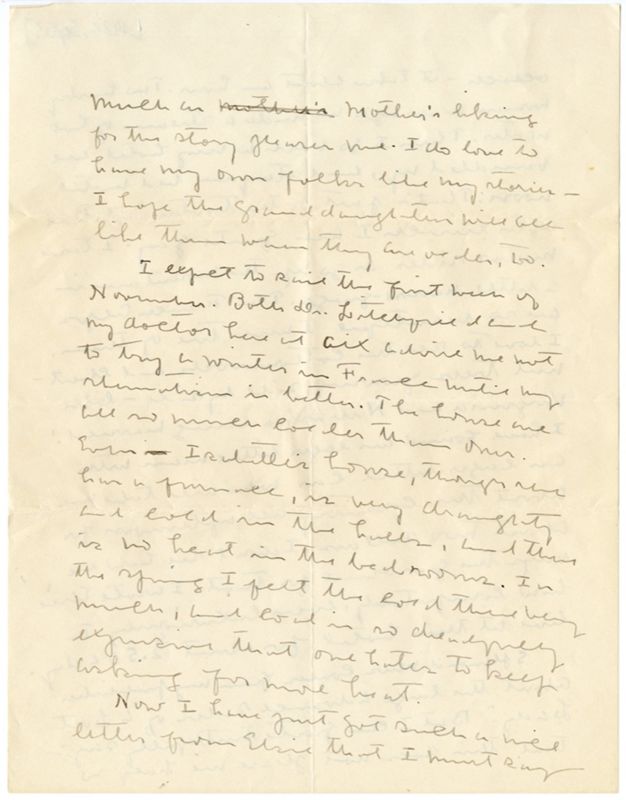 much as mother's Mother's liking
for the story pleases me. I do love to
have my own folks like my stories —
I hope the granddaughters will all
like them when they are older, too.
I expect to sail the first week of
November. Both Dr. Litchfield and
my doctor here at Aix advise me not
to try a winter in France until my
rheumatism is better. The houses are
all so much colder than ours.
Even — Isabelle's house, though she
has a furnace, is very draughty
and cold in the halls, and there
is no heat in the bedrooms. In
the spring I felt the cold there very
much, and coal is so dreadfully
expensive that one hates to keep
asking for more heat.
Now I have just got such a nice
letter from Elsie that I must say